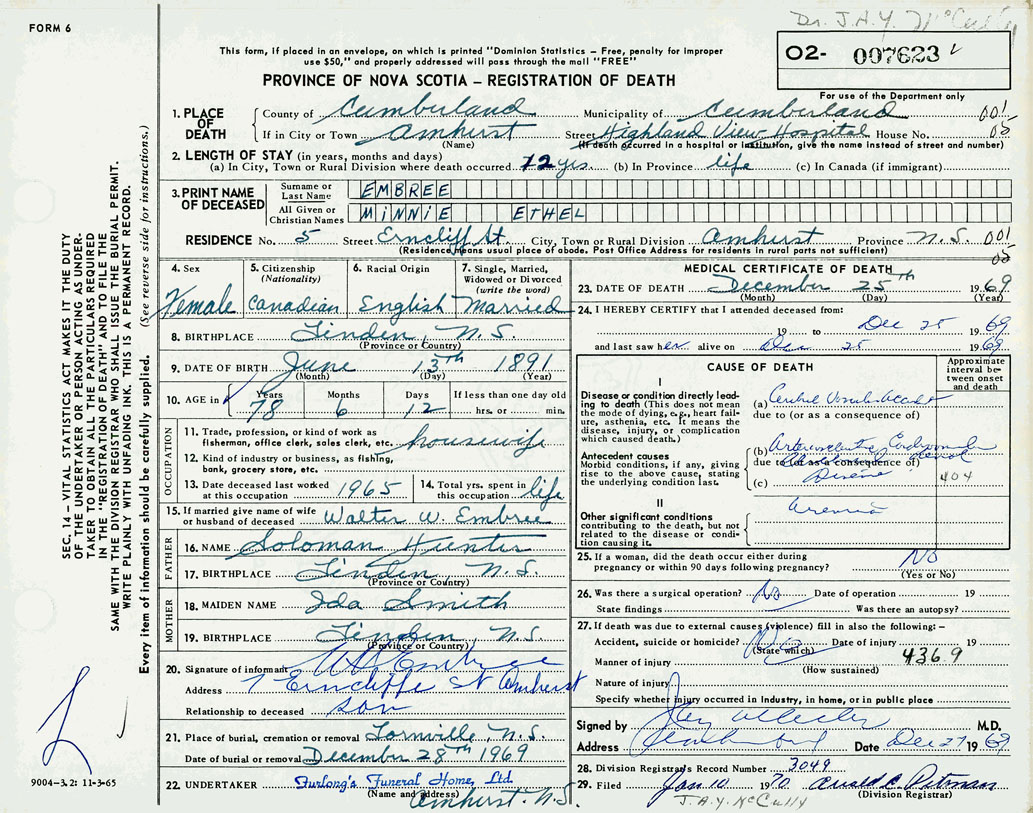 FORM 6
Dr. J.A.Y. McCully
This form, if placed in an envelope, on which is printed "Dominion Statistics – Free, penalty for improper
use $50," and properly addressed will pass through the mail "FREE"
PROVINCE OF NOVA SCOTIA – REGISTRATION OF DEATH
02- 007623
For use of the Department only
1. PLACE OF DEATH
County of Cumberland Municipality of Cumberland 001
If in City or Town Amherst Street Highland View Hospital House No. 08
(Name) (If death occurred in a hospital or institution, give the name instead of street and number)
2. LENGTH OF STAY (in years, months and days)
(a) In City, Town or Rural Division where death occurred 12 yrs. (b) In Province life (c) In Canada (if immigrant)
3. PRINT NAME OF DECEASED
Surname or Last Name EMBREE
All Given or Christian Names MINNIE ETHEL
RESIDENCE No. 5 Street Erncliff St. City, Town or Rural Division Amhurst Province N.S. 001
(Residence means usual place of abode. Post Office Address for residents in rural parts not sufficient) 08
4. Sex Female
5. Citizenship (Nationality) Canadian
6. Racial Origin English
7. Single, Married, Widowed or Divorced (write the word) Married
8. BIRTHPLACE Linden, N.S.
(Province or Country)
9. DATE OF BIRTH June 13th 1891
(Month) (Day) (Year)
10. AGE in Years Months Days If less than one day old
78 6 12 hrs. or min.
OCCUPATION
11. Trade, profession, or kind of work as fisherman, office clerk, sales clerk, etc. housewife
12. Kind of industry or business, as fishing, bank, grocery store, etc.
13. Date deceased last worked at this occupation 1965
14. Total yrs. spent in this occupation life
15. If married give name of wife or husband of deceased Walter W. Embree
FATHER
16. NAME Soloman Hunter
17. BIRTHPLACE Linden, N.S.
(Province or Country)
MOTHER
18. MAIDEN NAME Ida Smith
19. BIRTHPLACE Linden, N.S.
(Province or Country)
20. Signature of informant Embree
Address 7 Erncliffe St Amherst
Relationship to deceased son
21. Place of burial, cremation or removal Lornville, N.S.
Date of burial or removal December 28th 1969
22. UNDERTAKER Furlong's Funeral Home, Ltd
(Name and address) Amhurst. N.S.
MEDICAL CERTIFICATE OF DEATH
23. DATE OF DEATH December 25th 1969
(Month) (Day) (Year)
24. I HEREBY CERTIFY that I attended deceased from:
19 to Dec 25 1969
and last saw her alive on Dec 25 1969
CAUSE OF DEATH
Approximate interval between onset and death
I
Disease or condition directly leading to death (This does not mean the mode of dying, e.g., heart failure, asthenia, etc. It means the disease, injury, or complication which caused death.)
(a)
due to (or as a consequence of)
Antecedent causes
Morbid conditions, if any, giving rise to the above cause, stating the underlying condition last.
(b)
due to (or as a consequence of)
(c) Disease 404
II
Other significant conditions contributing to the death, but not related to the disease or condition causing it
uremia
25. If a woman, did the death occur either during pregnancy or within 90 days following pregnancy? No
(Yes or No)
26. Was there a surgical operation? No Date of operation 19
State findings Was there an autopsy?
27. If death was due to external causes (violence) fill in also the following: –
Accident, suicide or homicide? No Date of injury 19
(State which)
Manner of injury 436.9
(How sustained)
Nature of injury
Specify whether injury occurred in Industry, in home, or in public place
Signed by M.D.
Address Date Dec 27 1969
28. Division Registrar's Record Number 3049
29. Filed Jan 10 1970 Arnold C. Pitman
J.A.Y. McCully (Division Registrar)
SEC. 14 – VITAL STATISTICS ACT MAKES IT THE DUTY
OF THE UNDERTAKER OR PERSON ACTING AS UNDER-
TAKER TO OBTAIN ALL THE PARTICULARS REQUIRED
IN THE "REGISTRATION OF DEATH" AND TO FILE THE
SAME WITH THE DIVISION REGISTRAR WHO SHALL ISSUE THE BURIAL PERMIT.
WRITE PLAINLY WITH UNFADING INK. THIS IS A PERMANENT RECORD.
Every item of information should be carefully supplied. (See reverse side for instructions.)
9004–3.2: 11-3-65